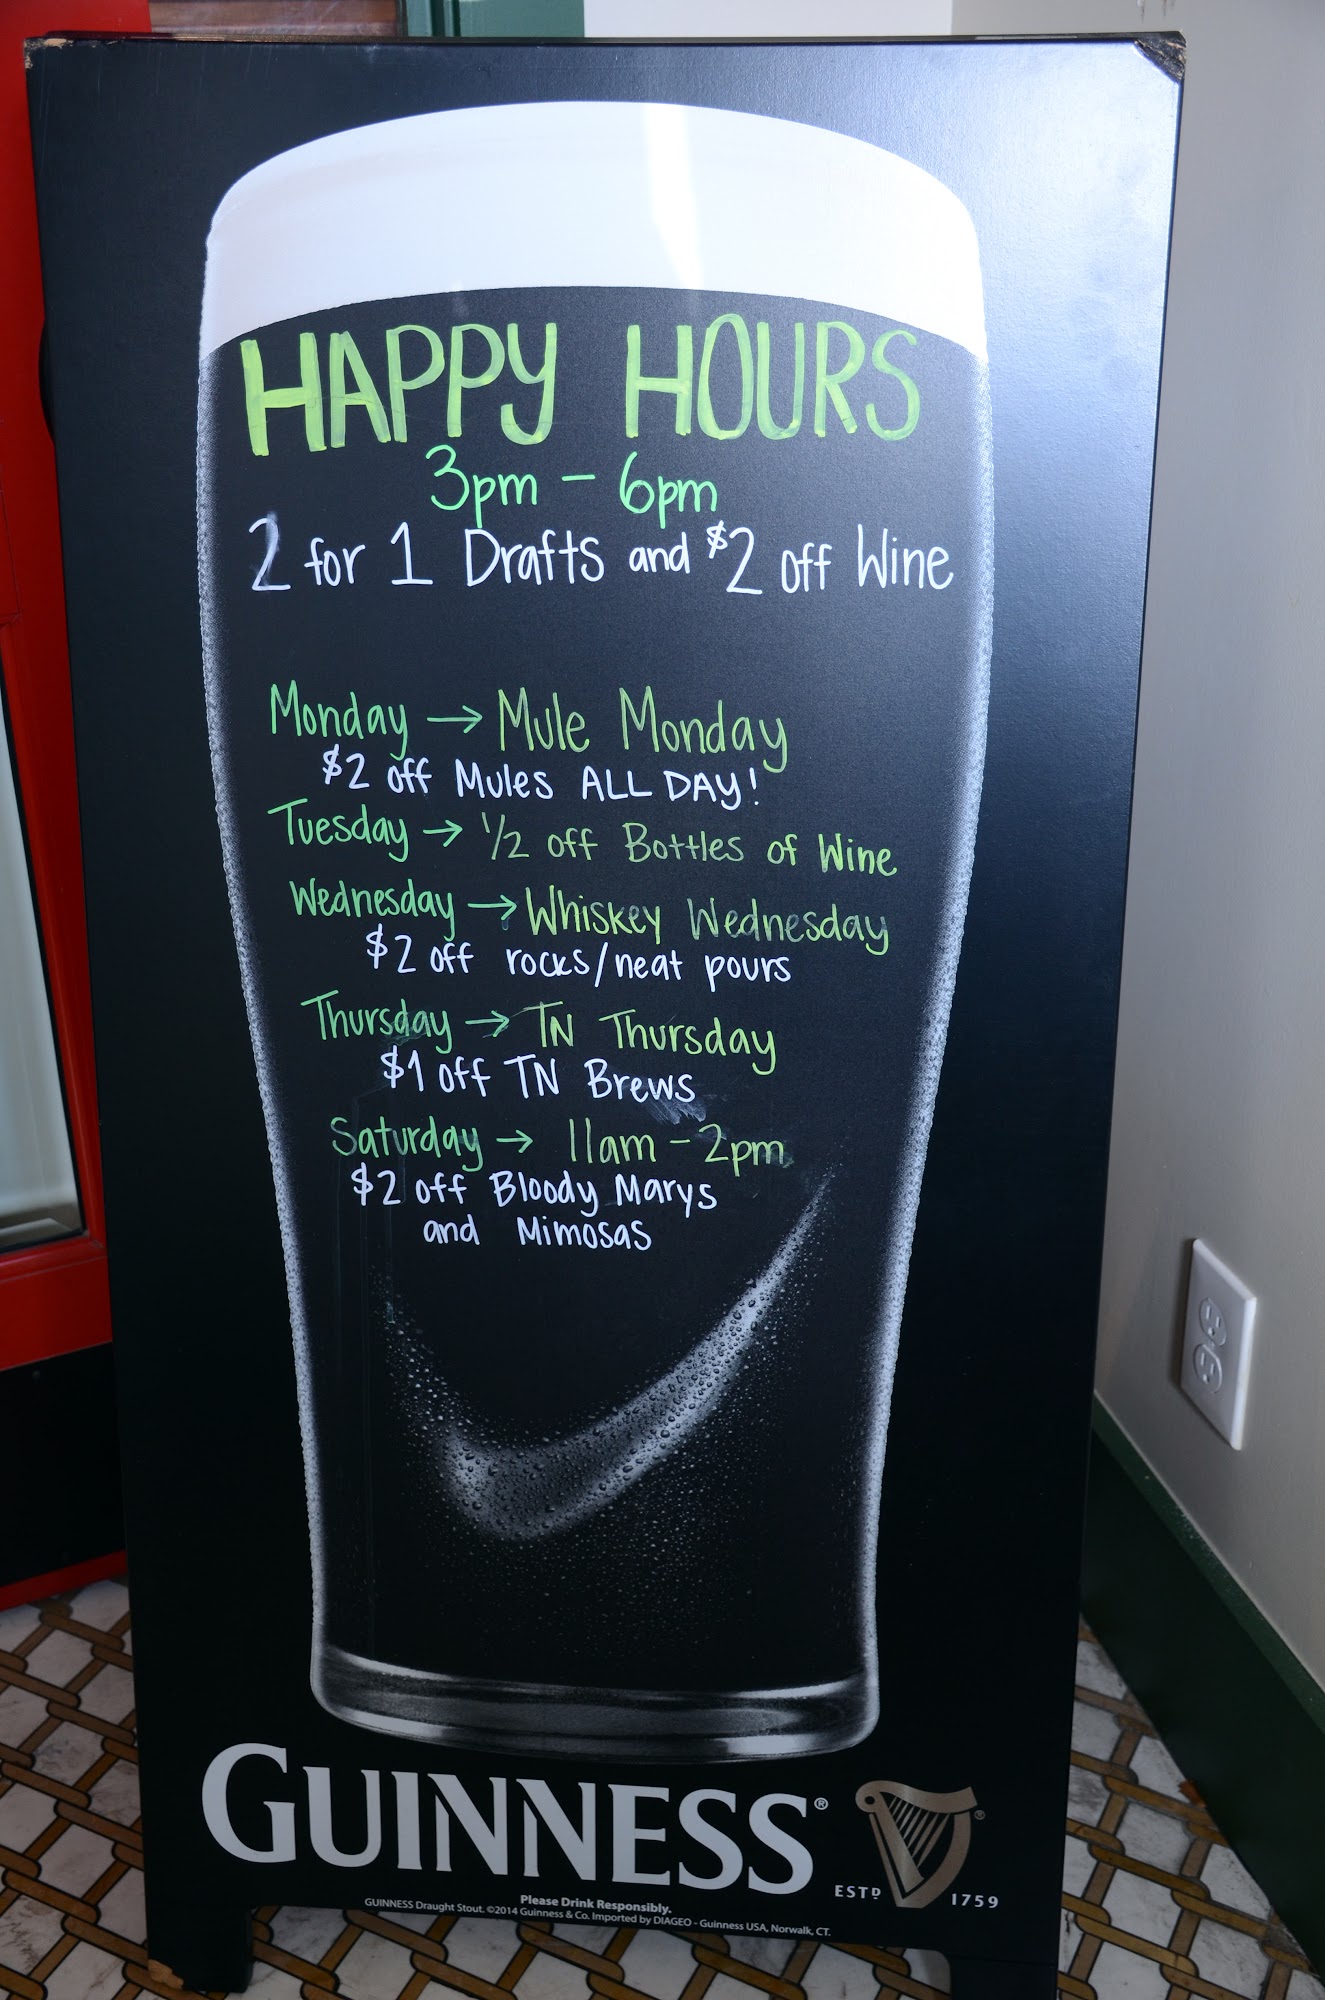 HAPPY HOURS
3pm - 6pm
2 for 1 Drafts and $2 off Wine
Monday → Mule Monday
$2 off Mules ALL DAY!
Tuesday → 1/2 off Bottles of Wine
Wednesday → Whiskey Wednesday
$2 off rocks/neat pours
Thursday → TN Thursday
$1 off TN Brews
Saturday → 11am - 2pm
$2 off Bloody Marys
and Mimosas
GUINNESS®
ESTD 1759
Please Drink Responsibly.
GUINNESS Draught Stout. ©2014 Guinness & Co. Imported by DIAGEO - Guinness USA, Norwalk, CT.